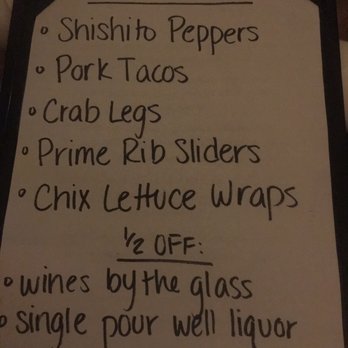 • Shishito Peppers
• Pork Tacos
• Crab Legs
• Prime Rib Sliders
• Chix Lettuce Wraps
1/2 OFF:
• wines by the glass
• single pour well liquor